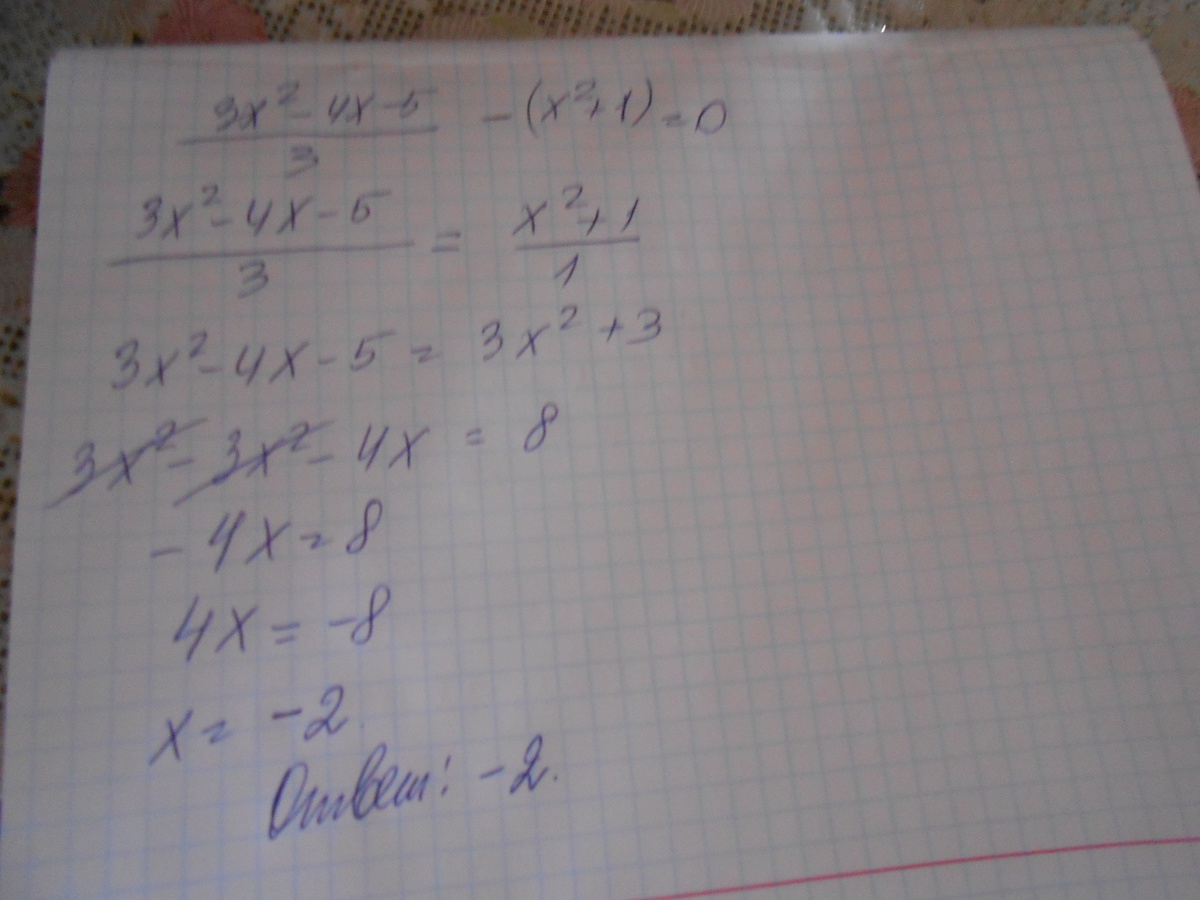 3x² - 4x - 5
3
- (x² + 1) = 0
3x² - 4x - 5
3
=
x² + 1
1
3x² - 4x - 5 = 3x² + 3
3x² - 3x² - 4x = 8
- 4x = 8
4x = -8
x = -2
Ответ: -2.